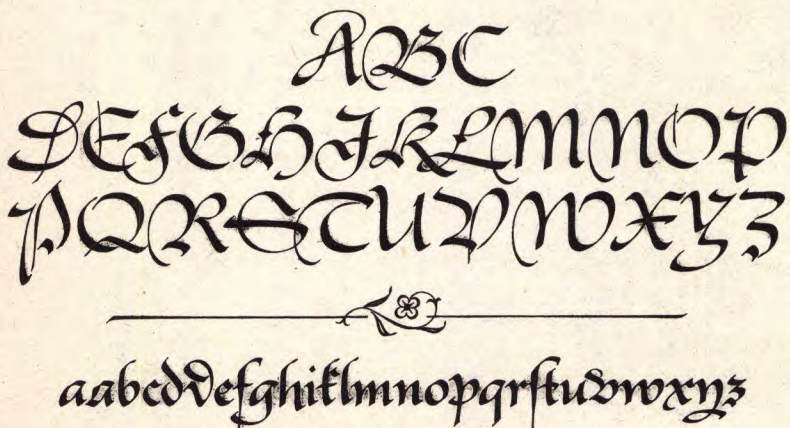 ABC
DEFGHJKLMNOP
PQRSTUVWXYZ
aabcddefghiklmnopqrſtuvwxyz